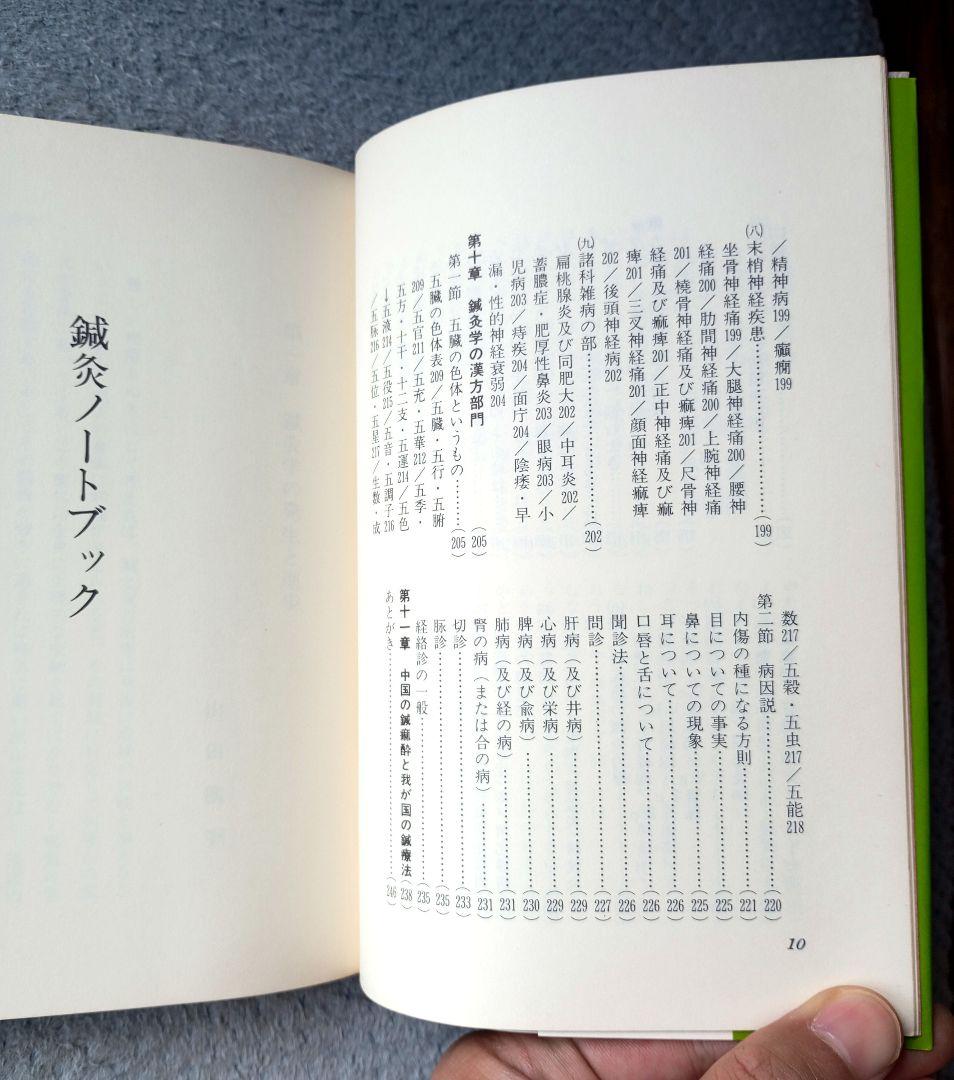 ／精神病199／癲癇199
㈧末梢神経疾患…………………(199)
坐骨神経痛199／大腿神経痛200／腰神
経痛200／肋間神経痛200／上腕神経痛
201／橈骨神経痛及び痲痺201／尺骨神
経痛及び痲痺201／正中神経痛及び痲
痺201／三叉神経痛201／顔面神経痲痺
202／後頭神経病202
㈨諸科雑病の部…………………(202)
扁桃腺炎及び同肥大202／中耳炎202／
蓄膿症・肥厚性鼻炎203／眼病203／小
児病203／痔疾204／面疔204／陰痿・早
漏・性的神経衰弱204
第十章　鍼灸学の漢方部門 (205)
第一節　五臓の色体というもの………(205)
五臓の色体表209／五臓・五行・五腑
209／五官211／五充・五華212／五季・
五方・十干・十二支・五運214／五色
↓五液214／五役215／五音・五調子216
／五脈216／五位・五星217／生数・成
数217／五穀・五虫217／五能218
第二節　病因説…………………(220)
内傷の種になる方則…………………(221)
目についての事実…………………(225)
鼻についての現象…………………(225)
耳について…………………(226)
口唇と舌について…………………(226)
聞診法…………………(226)
問診…………………(227)
肝病（及び井病）…………………(229)
心病（及び栄病）…………………(229)
脾病（及び兪病）…………………(230)
肺病（及び経の病）…………………(231)
腎の病（または合の病）…………………(231)
切診…………………(233)
脈診…………………(235)
経絡診の一般…………………(235)
第十一章　中国の鍼痲酔と我が国の鍼療法 (238)
あとがき…………………(246)
10
鍼灸ノートブック